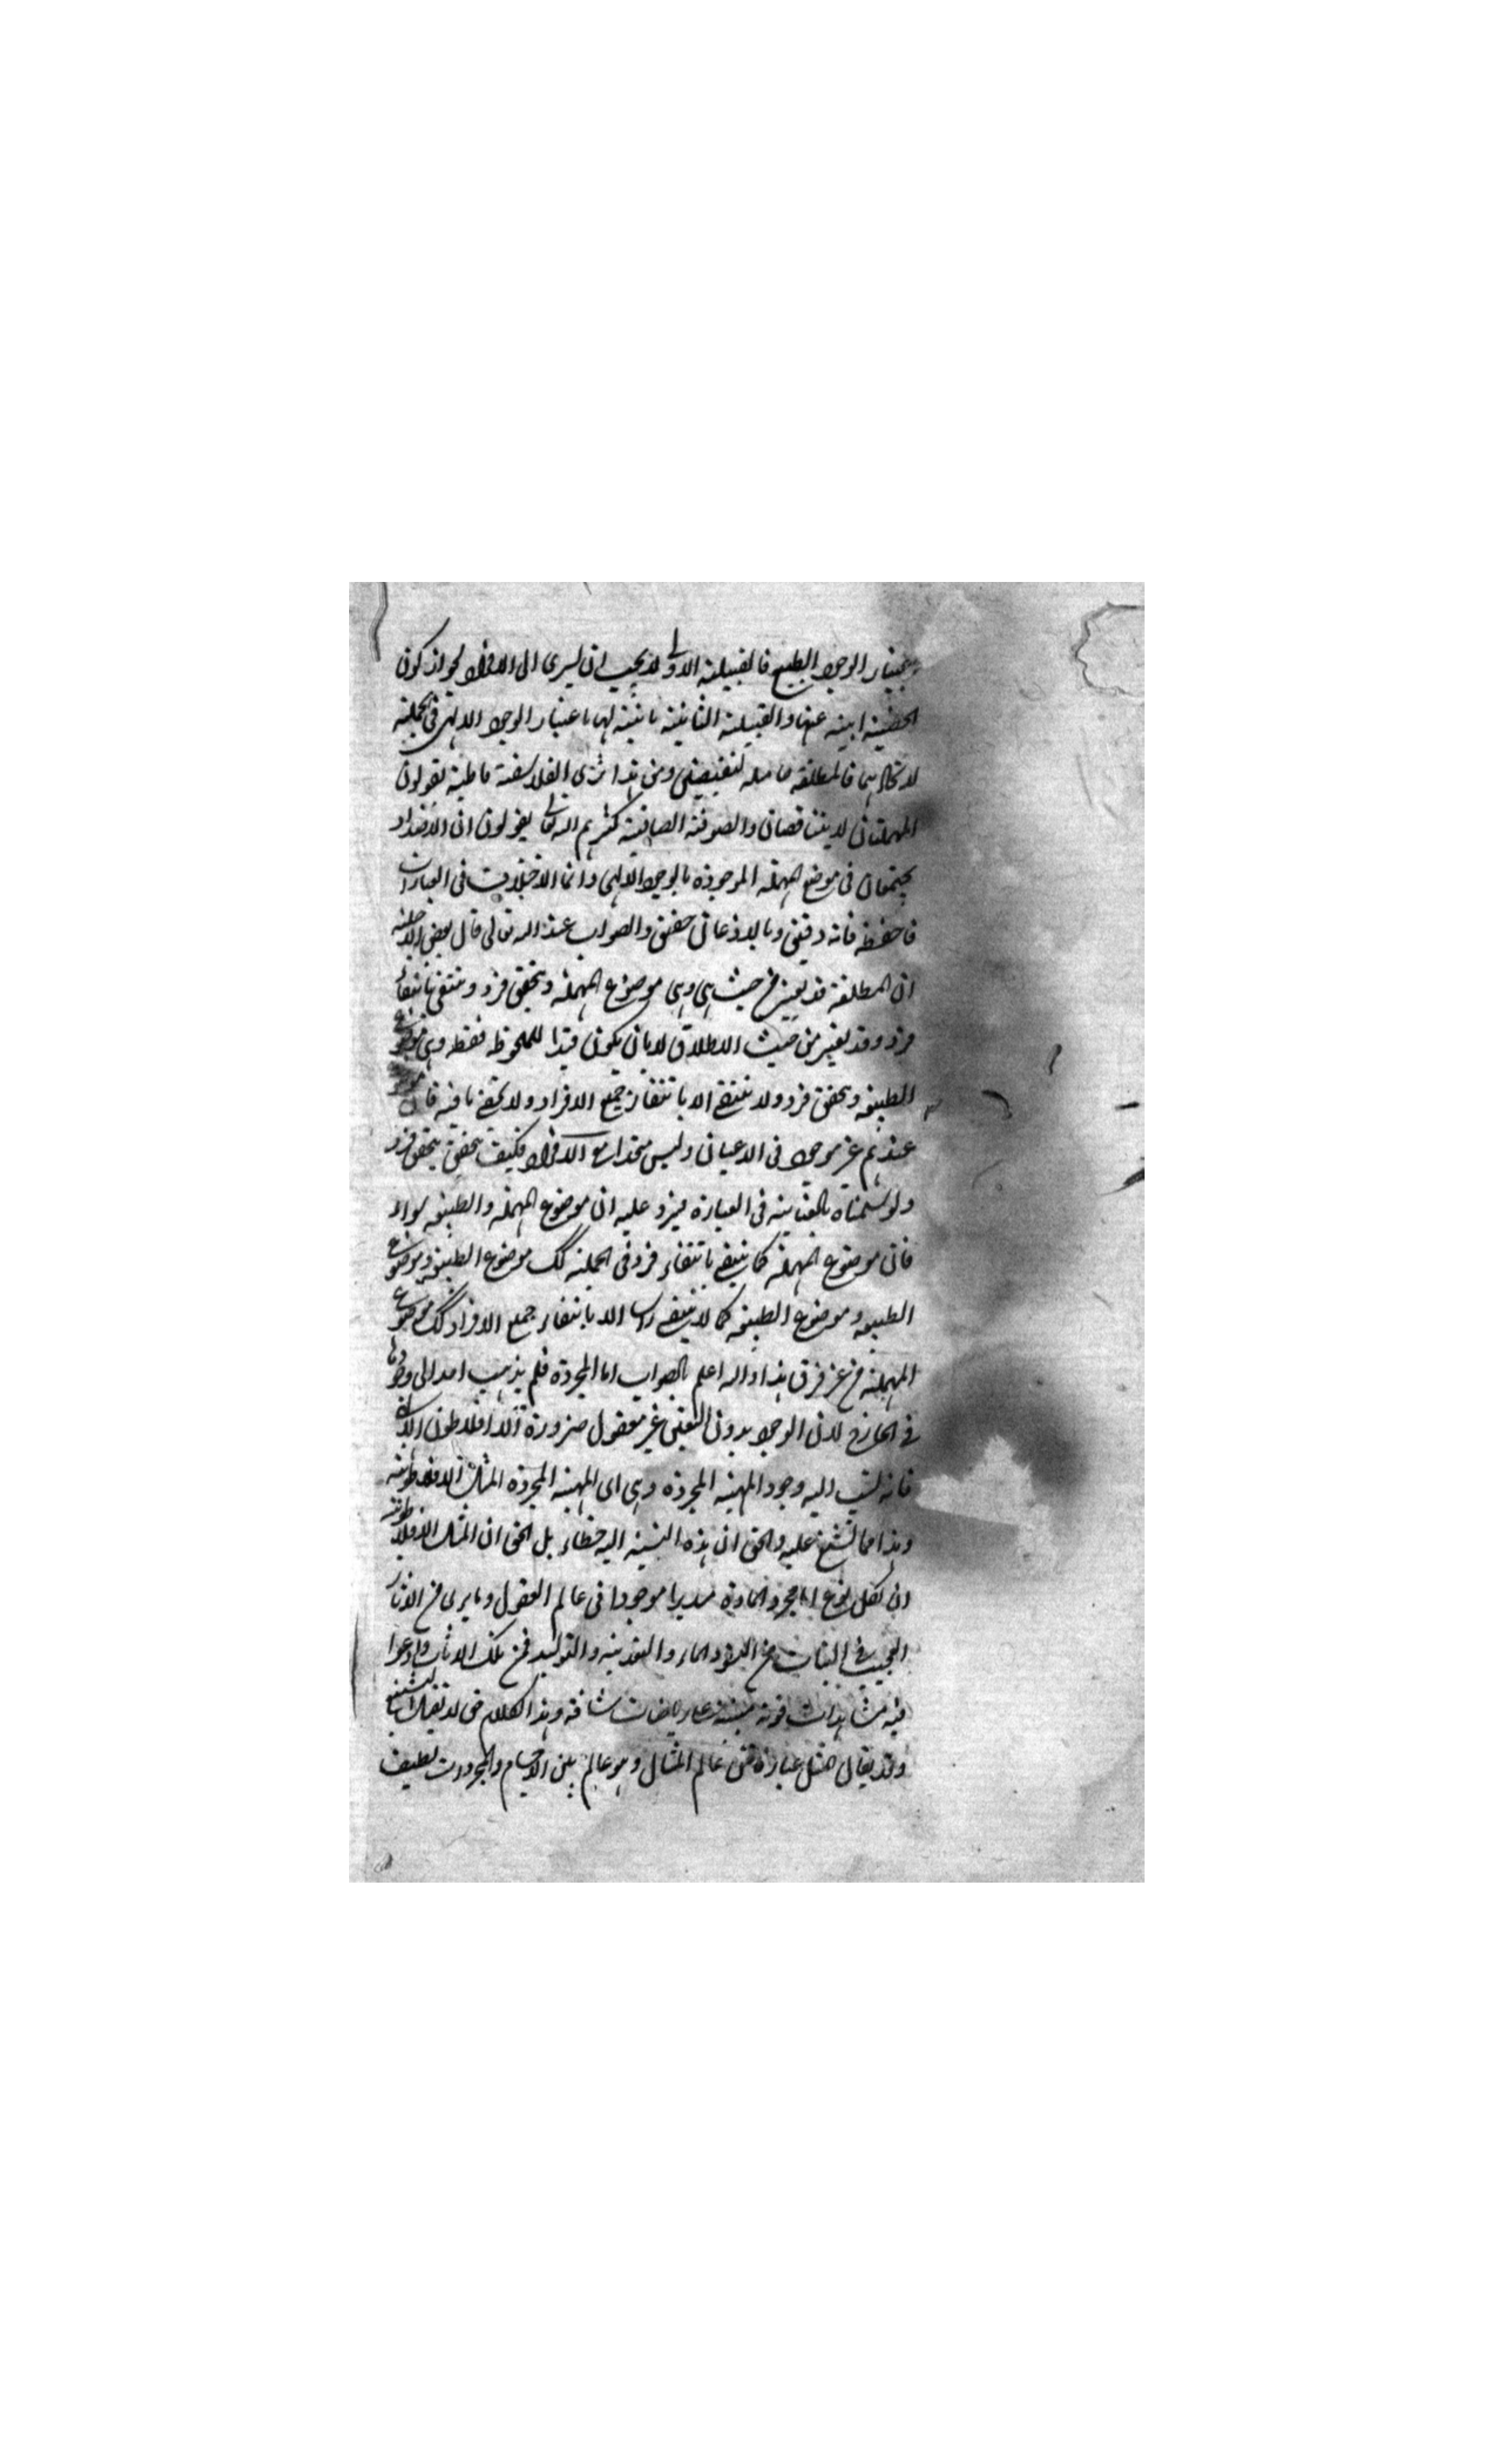 باعتبار الوجود الطبيعي فالقبيلة الاولى لا يجب ان يسرى الى الافراد لجواز كون
الحيثية ابية عنها والقبيلة الثانية ثابتة لها باعتبار الوجود الالهى فى الجملة
فالمطلقة حاملة لنقيضين ومن هذا ترى الفلاسفة قاطبة يقولون
المهملتان لا يتناقضان والصوفية الصافية كثرهم الله تعالى يقولون ان الاضداد
يجتمعان فى موضوع المهملة الموجودة بالوجود الالهى وانما الاختلاف فى العبارات
فاحفظ فانه دقيق وبالاذعان حقيق والصواب عند الله تعالى قال بعض الاجلة
ان المطلقة قد يعتبر من حيث هى وهى موضوع المهملة وتحقق فرد وتنتفى بانتفاء
فرد وقد تعتبر من حيث الاطلاق لا بان يكون قيدا للملحوظ فقط وهى موضوع
الطبيعة وتحقق فرد ولا تنتفى الا بانتفاء جميع الافراد ولا يخفى ما فيه فان
عندهم غير موجود فى الاعيان وليس متحدا مع الافراد فكيف يتحقق بتحقق فرد
ولو سلمناه بالعناية فى العبارة فيرد عليه ان موضوع المهملة والطبيعة سواء
فان موضوع المهملة كما ينتفى بانتفاء فرد فى الجملة كك موضوع الطبيعة وموضوع
الطبيعة وموضوع الطبيعة كما لا ينتفى راسا الا بانتفاء جميع الافراد كك موضوع
المهملة من غير فرق هذا والله اعلم بالصواب اما المجردة فلم يذهب احد الى وجودها
فى الخارج لان الوجود بدون التعين غير معقول ضرورة الا افلاطون الالهى
فانه نسب اليه وجود المهية المجردة وهى اى المهية المجردة المثل الافلاطونية
وهذا مما تشنع عليه والحق ان هذه النسبة اليه خطاء بل الحق ان المثل الافلاطونية
ان لكل نوع امرا مجردا عن المادة مدبرا موجودا فى عالم العقول وما يرى من الاثار
العجيبة فى النبات من النمو والتغذية والتوليد فمن تلك الاثار وادعوا
فيه مشاهدات قوية مبنية على رياضات شاقة وهذا الكلام حق لا يقبل التشنيع
وقد يقال المثل عبارة عن عالم المثال وهو عالم بين الاجسام والمجردات لطيف